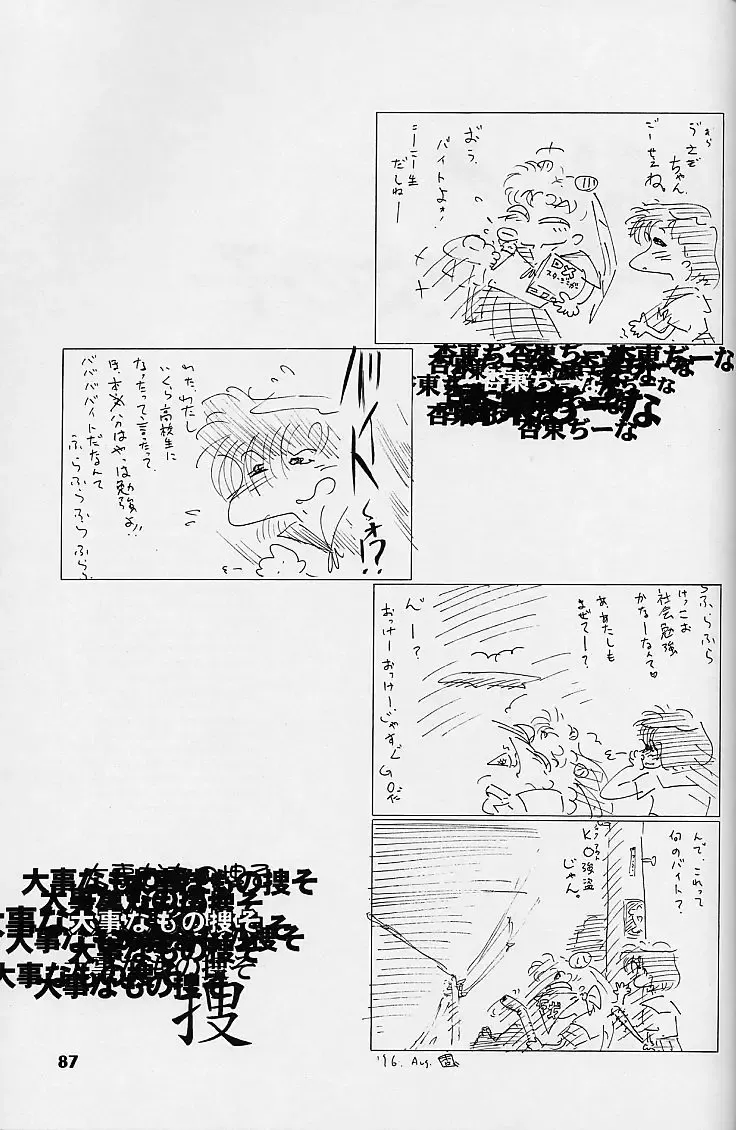 うさぎ
ちゃん、
ごーせーね。
おう、
バイトよォ!
こーこー生
だしねー
DX
杏東ぢーな
杏東ぢーな
杏東ぢーな
バイト
〜ォ!?
わた、わたし
いくら高校生に
なったって言ったって、
ほ、本分はやは勉強よ!!
バババイトだなんて
ふらふらふらふらふら
ふらふら
けっこお
社会勉強
かなーなんて♡
ああたしも
まぜてー?
んー?
おっけーおっけー、じゃすぐGOだ
んで、これって
何のバイト?
KO強盗
じゃん。
大事なもの捜そ
大事なもの捜そ
大事なもの捜そ
大事なもの捜そ
大事なもの捜そ
捜
87
'96. Aug.